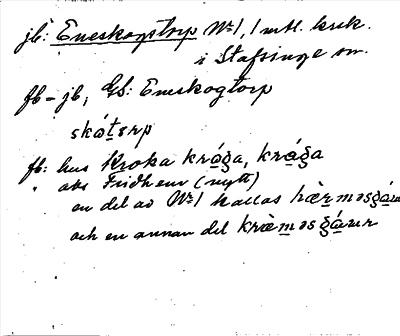 jb: Eneskogstorp No 1, 1 mtl. krk.
i Stafsinge sn.
fb – jb, GS: Eneskogtorp
skåtərp
fb: hus Kroka kråga, kråga
" ohs Fridhem (nytt)
en del av No 1 kallas hæ̀rməsgá
och en annan del kræ̀məsgárər